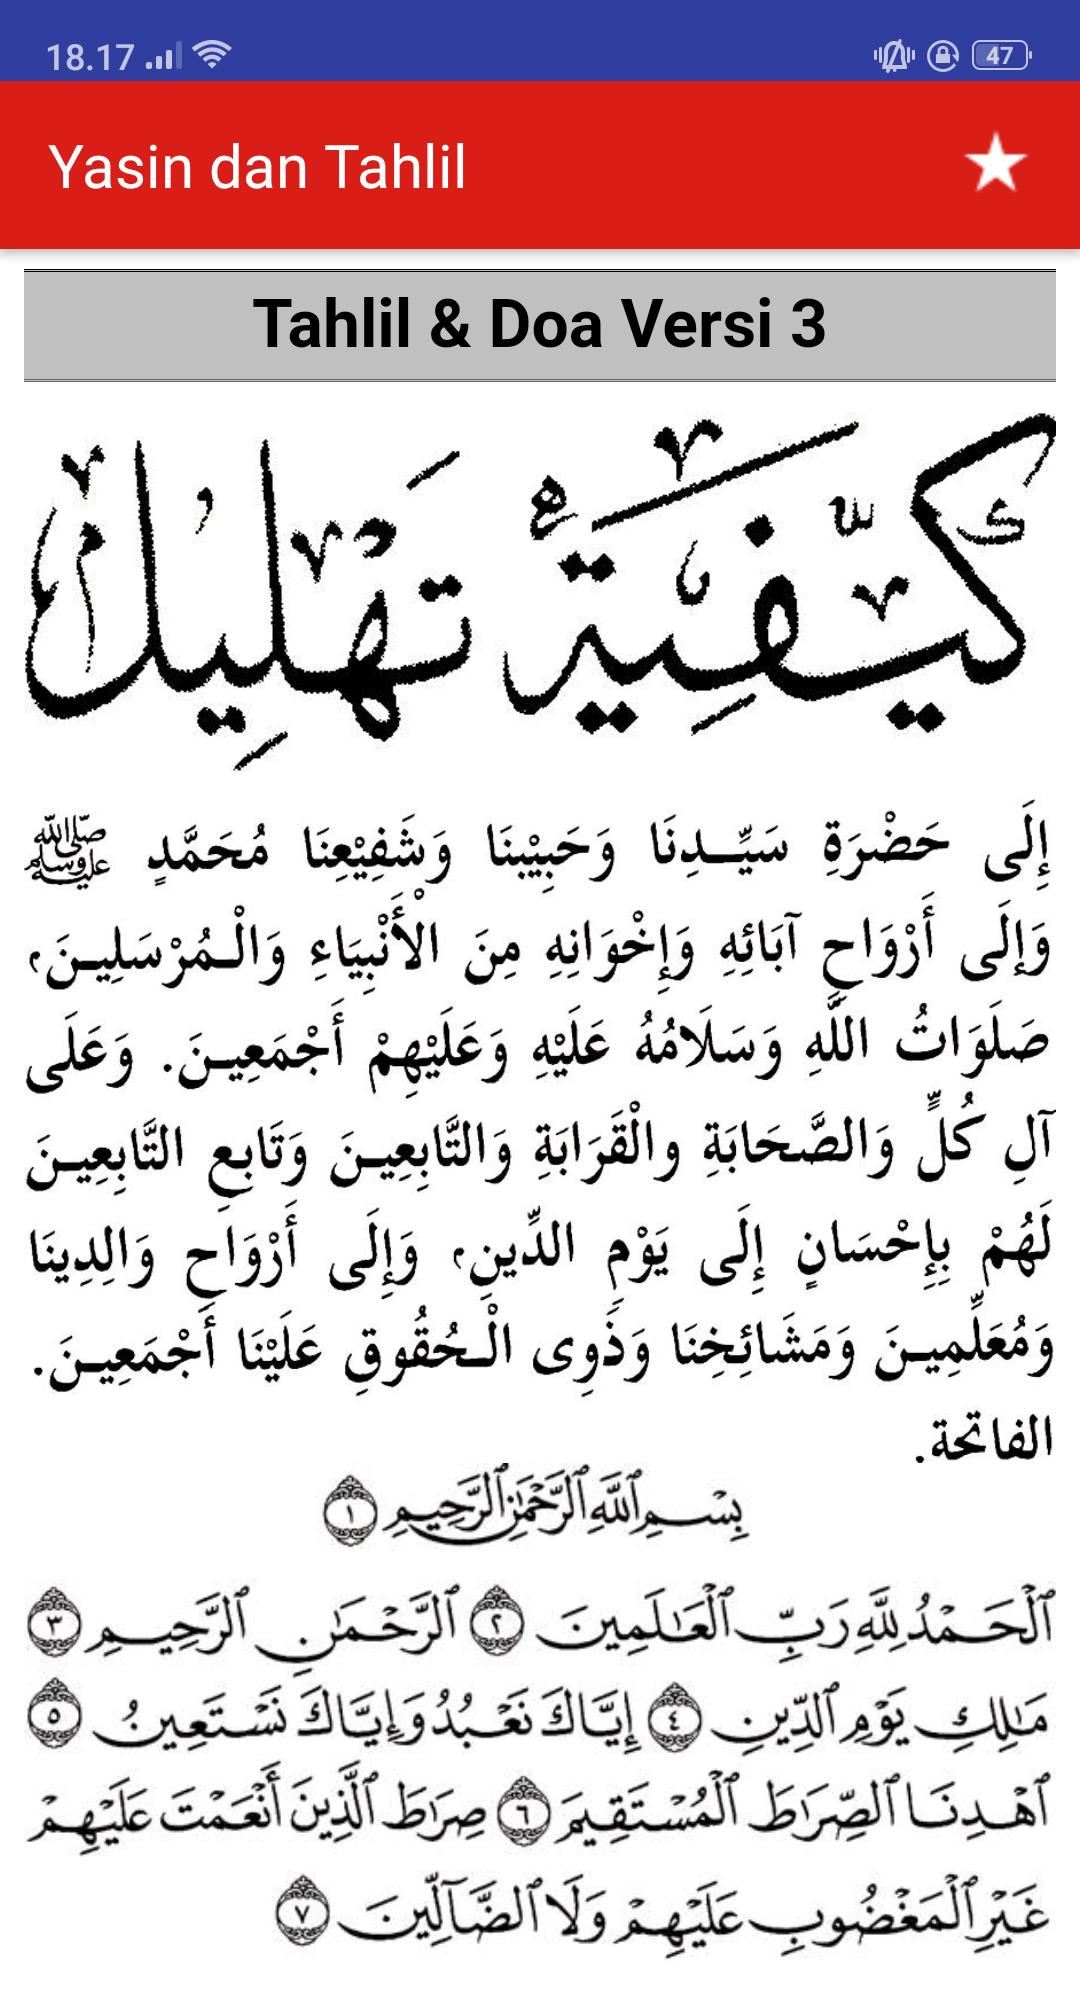 18.17
47
Yasin dan Tahlil
Tahlil & Doa Versi 3
كَيْفِيَّةُ تَهْلِيلْ
إِلَى حَضْرَةِ سَيِّدِنَا وَحَبِيْبِنَا وَشَفِيْعِنَا مُحَمَّدٍ ﷺ
وَإِلَى أَرْوَاحِ آبَائِهِ وَإِخْوَانِهِ مِنَ الْأَنْبِيَاءِ وَالْمُرْسَلِينَ،
صَلَوَاتُ اللَّهِ وَسَلَامُهُ عَلَيْهِ وَعَلَيْهِمْ أَجْمَعِينَ. وَعَلَى
آلِ كُلٍّ وَالصَّحَابَةِ والْقَرَابَةِ وَالتَّابِعِينَ وَتَابِعِ التَّابِعِينَ
لَهُمْ بِإِحْسَانٍ إِلَى يَوْمِ الدِّينِ، وَإِلَى أَرْوَاحِ وَالِدِينَا
وَمُعَلِّمِينَ وَمَشَائِخِنَا وَذَوِى الْحُقُوقِ عَلَيْنَا أَجْمَعِينَ.
الفاتحة.
بِسْمِ ٱللَّهِ ٱلرَّحْمَٰنِ ٱلرَّحِيمِ ١
ٱلْحَمْدُ لِلَّهِ رَبِّ ٱلْعَٰلَمِينَ ٢ ٱلرَّحْمَٰنِ ٱلرَّحِيمِ ٣
مَٰلِكِ يَوْمِ ٱلدِّينِ ٤ إِيَّاكَ نَعْبُدُ وَإِيَّاكَ نَسْتَعِينُ ٥
ٱهْدِنَا ٱلصِّرَٰطَ ٱلْمُسْتَقِيمَ ٦ صِرَٰطَ ٱلَّذِينَ أَنْعَمْتَ عَلَيْهِمْ
غَيْرِ ٱلْمَغْضُوبِ عَلَيْهِمْ وَلَا ٱلضَّآلِّينَ ٧